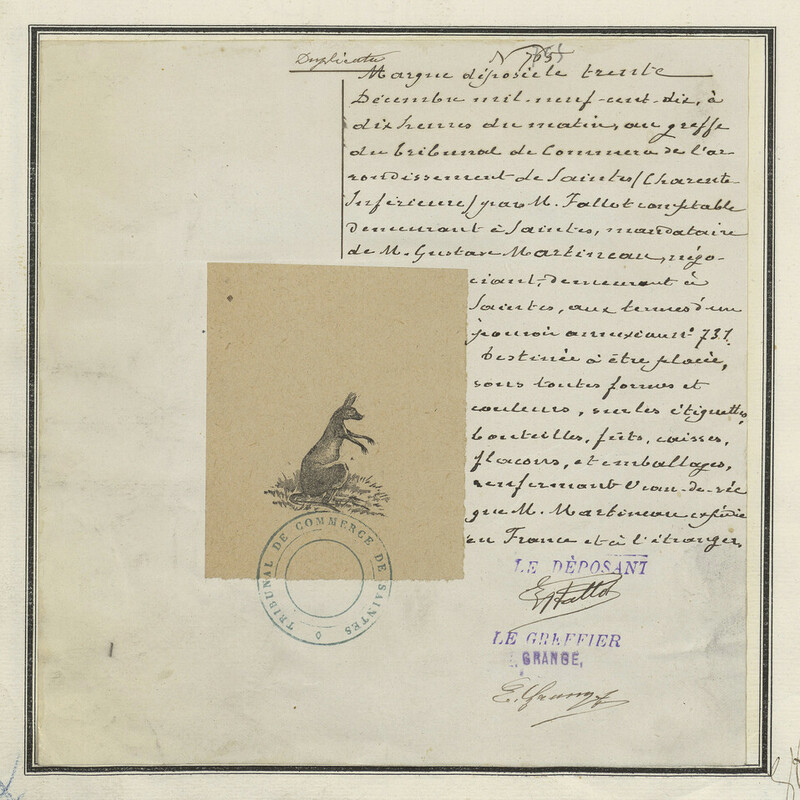 Duplicata
N° 765
Marque déposée le trente
Décembre mil-neuf-cent-dix, à
dix heures du matin, au greffe
du tribunal de Commerce de l'ar
rondissement de Saintes (Charente
Inférieure) par M. Fallot comptable
demeurant à Saintes, mandataire
de M. Gustave Martineau, négo-
ciant, demeurant à
Saintes, aux termes d'un
pouvoir annexé au n° 731.
Destinée à être placée,
sous toutes formes et
couleurs, sur les étiquettes,
bouteilles, fûts, caisses,
flacons, et emballages,
renfermant l'eau-de-vie
que M. Martineau expédie
en France et à l'étranger.
TRIBUNAL DE COMMERCE DE SAINTES
LE DÉPOSANT
E. Fallot
LE GREFFIER
GRANGE,
E. Grange